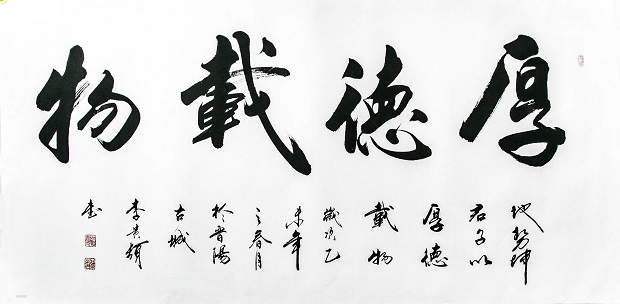 厚德載物
地势坤
君子以
厚德
載物
歲次乙
未年
之春月
於晋陽
古城
李
書